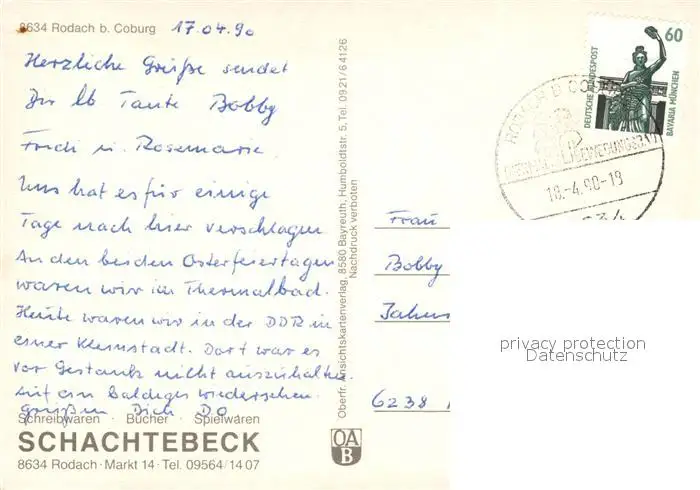 8634 Rodach b. Coburg
17.04.90
Herzliche Grüße sendet
Dir lb Tante Bobby
Fredi u. Rosemarie
Uns hat es für einige
Tage nach hier verschlagen
An den beiden Osterfeiertagen
waren wir im Thermalbad.
Heute waren wir in der DDR in
einer Kleinstadt. Dort war es
vor Gestank nicht auszuhalten.
Auf ein baldiges wiedersehen.
grüßen Dich D O
Schreibwaren · Bücher · Spielwaren
SCHACHTEBECK
8634 Rodach · Markt 14 · Tel. 09564/1407
Oberfr. Ansichtskartenverlag, 8580 Bayreuth, Humboldtstr. 5, Tel. 0921/64126
Nachdruck verboten
OA
B
60
DEUTSCHE BUNDESPOST
BAVARIA MÜNCHEN
RODACH B CO
BEWEGUNGSBAD
18.-4.90-19
Frau
Bobby
6238
privacy protection
Datenschutz